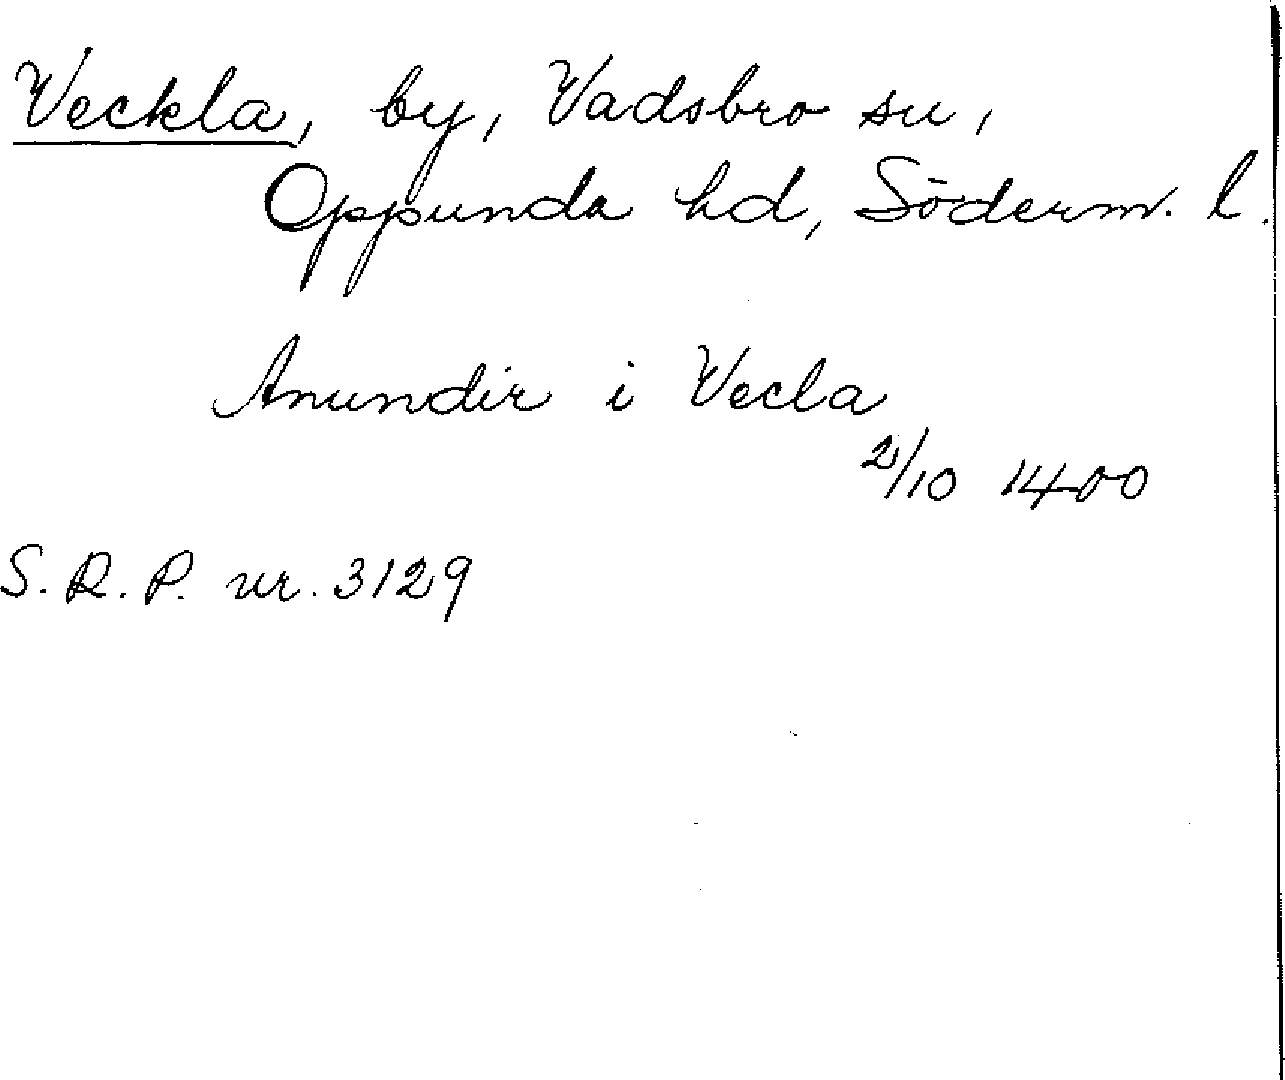 Veckla, by, Vadsbro sn,
Oppunda hd, Söderm. l.
Anundir i Vecla
2/10 1400
S.R.P. nr. 3129